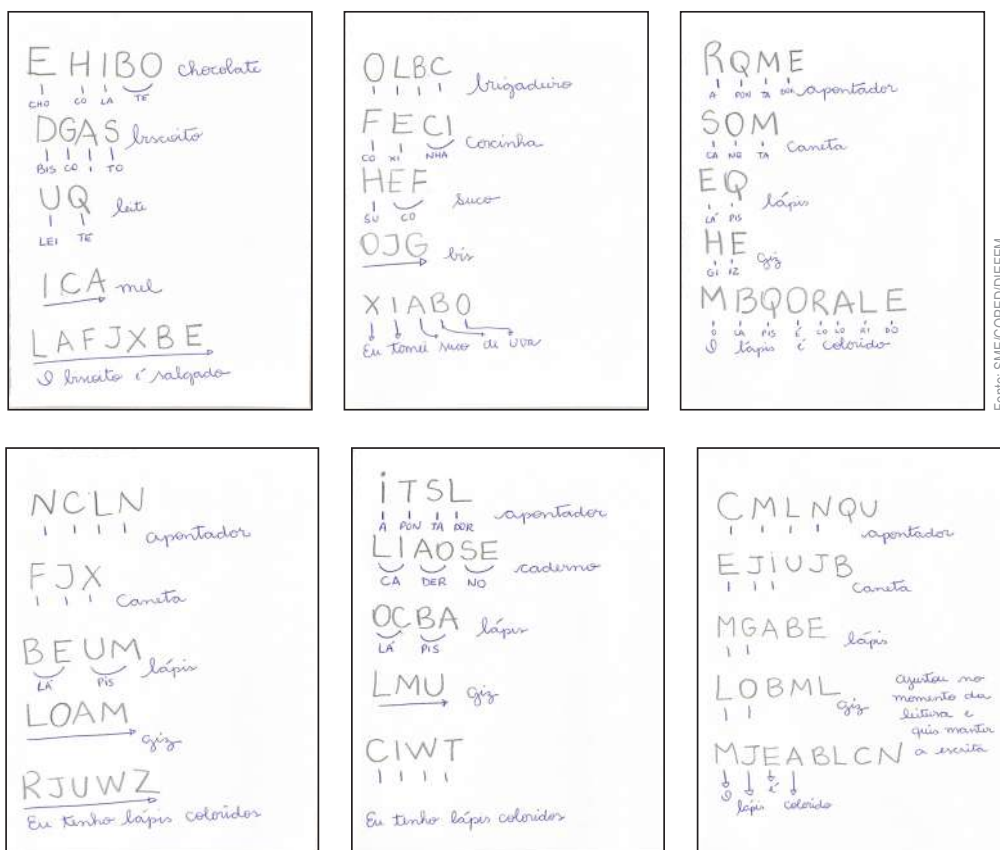 E HIBO chocolate
CHO CO LA TE
DGAS biscoito
BIS CO I TO
UQ leite
LEI TE
ICA mel
LAFJXBE
O biscoito é salgado
OLBC brigadeiro
FECI Coxinha
CO XI NHA
HEF suco
SU CO
OJG bis
XIABO
Eu tomei suco de uva
RQME apontador
A PON TA DOR
SOM Caneta
CA NE TA
EQ lápis
LÁ PIS
HE giz
GI IZ
MBQORALE
O LA PIS É CO LO RI DO
O lápis é colorido
Fonte: SME/COPED/DIEFEM
NCLN apontador
FJX Caneta
BEUM lápis
LÁ PIS
LOAM giz
RJUWZ
Eu tenho lápis coloridos
iTSL apontador
A PON TA DOR
LIAOSE caderno
CA DER NO
OCBA lápis
LÁ PIS
LMU giz
CIWT
Eu tenho lápis coloridos
CMLNQU apontador
EJiUJB Caneta
MGABE lápis
LOBML giz
ajustou no momento da leitura e quis manter a escrita
MJEABLCN
O lápis é colorido